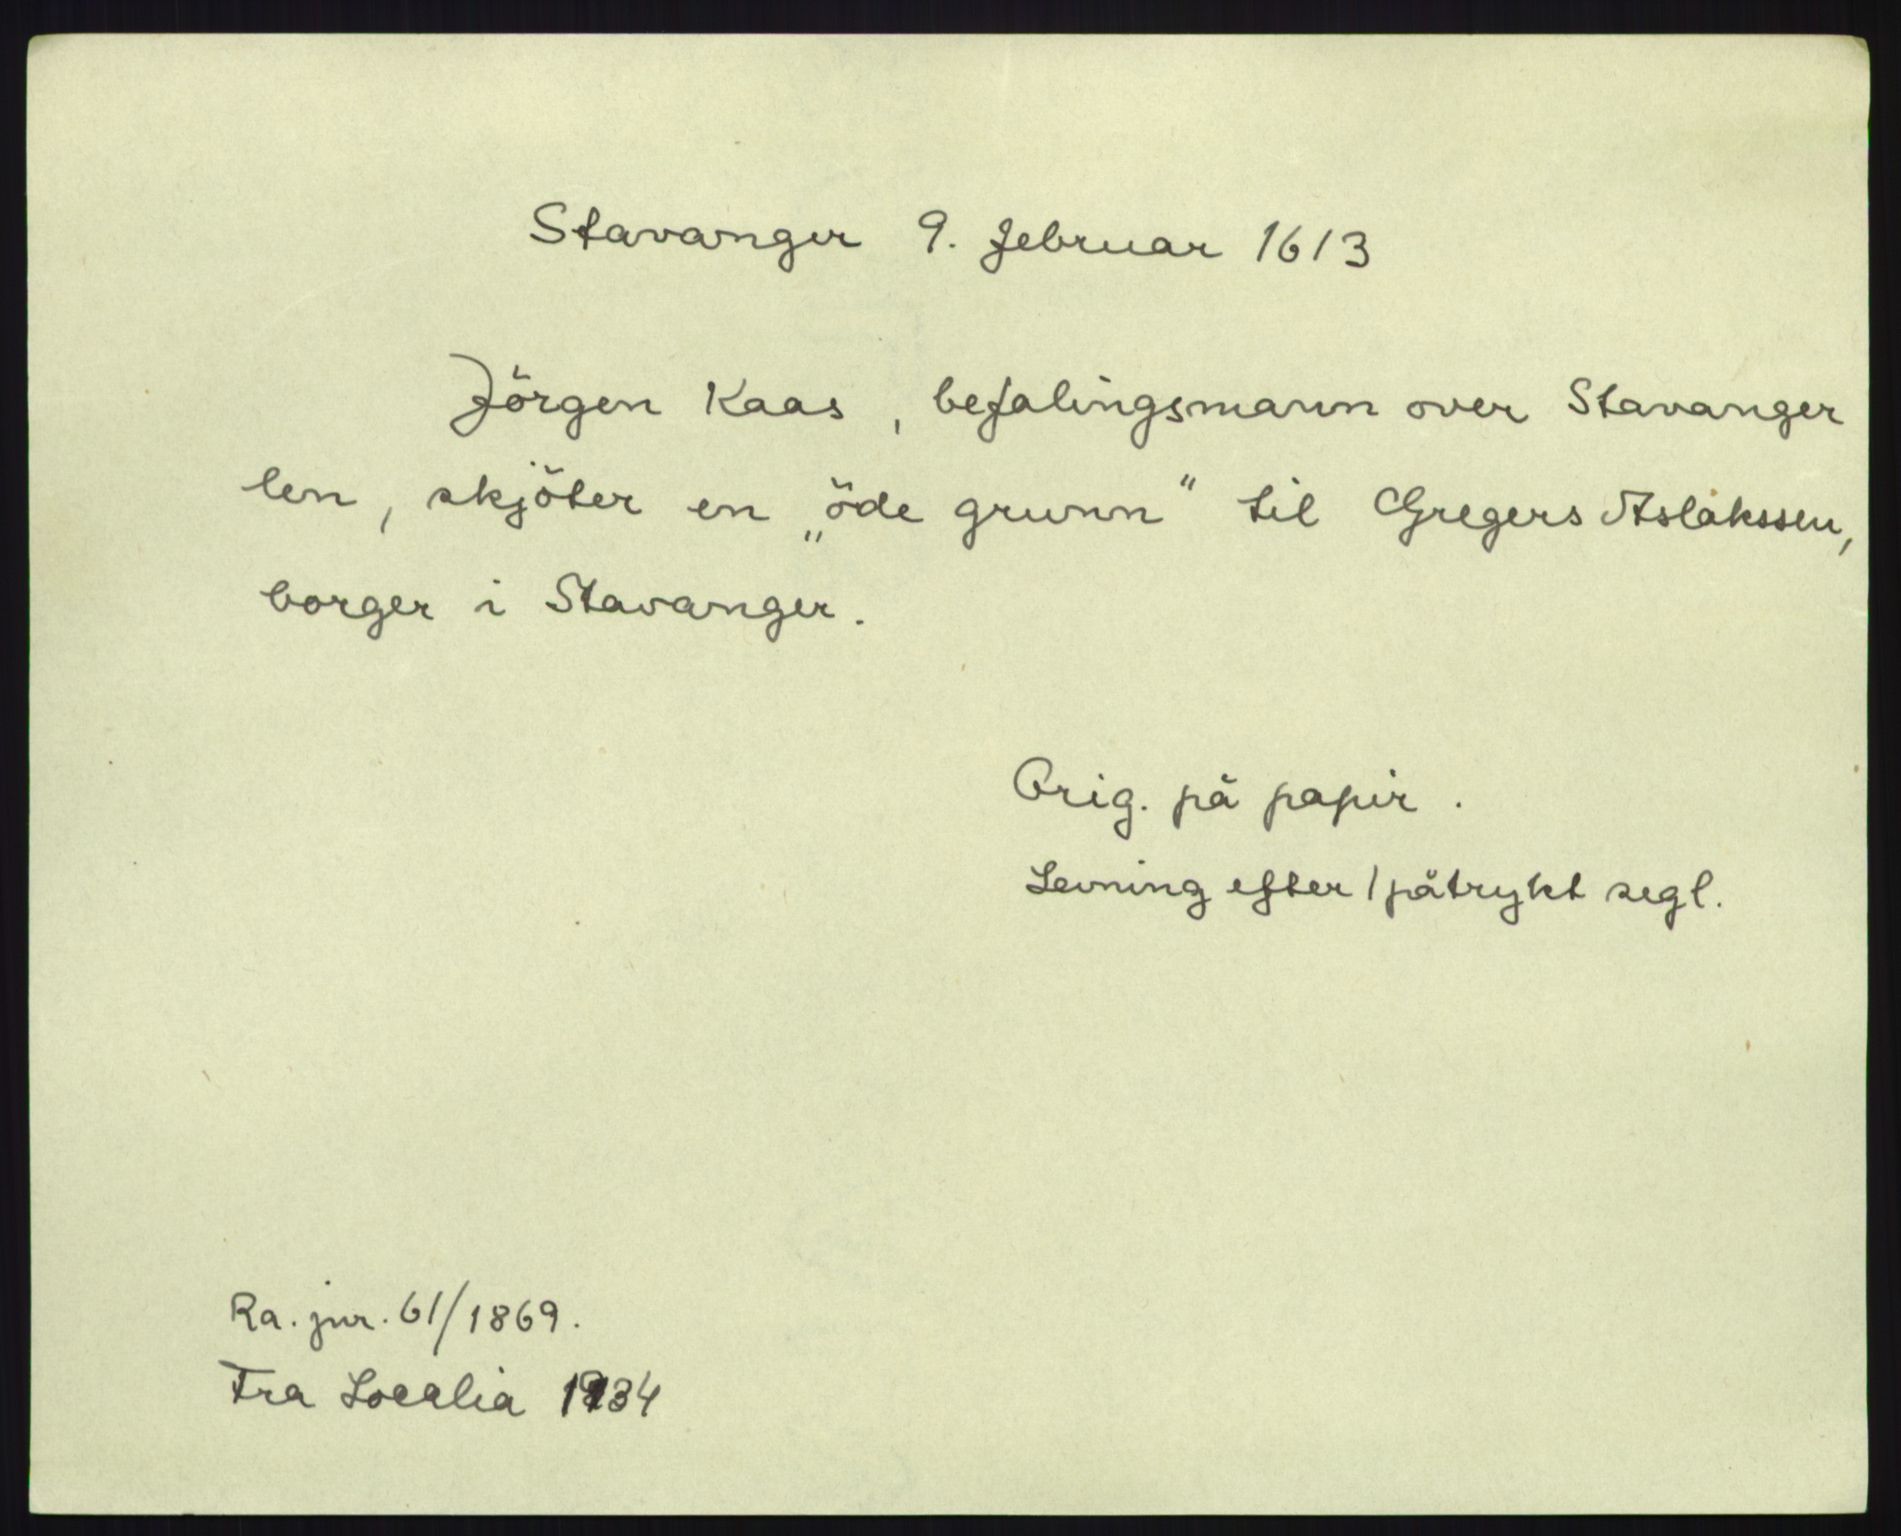 Stavanger 9. februar 1613
Jörgen Kaas, befalingsmann over Stavanger
len, skjöter en „öde grunn" til Gregers Aslakssen,
borger i Stavanger.
Orig. på papir.
Levning efter 1 påtrykt segl.
Ra. jnr. 61/1869.
Fra Localia 1934